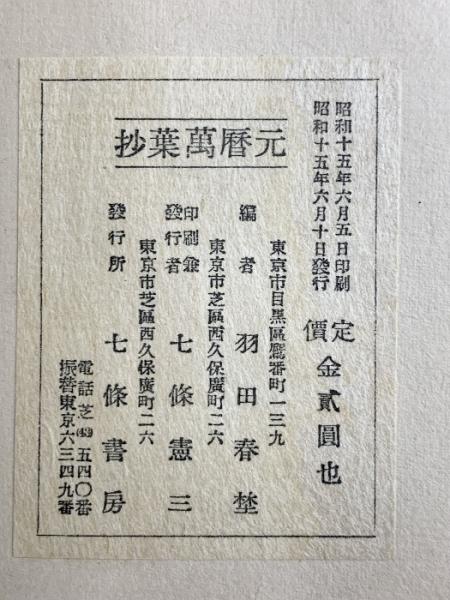 昭和十五年六月五日印刷
昭和十五年六月十日發行
定價金貳圓也
元暦萬葉抄
東京市目黑區鷹番町一三九
編者 羽田春埜
東京市芝區西久保廣町二六
印刷兼發行者 七條憲三
東京市芝區西久保廣町二六
發行所 七條書房
電話芝(43)五四〇番
振替東京六三四九番